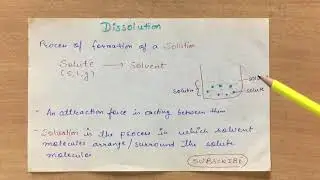 Dissolution
Process of formation of a Solution
Solute → Solvent
(s, l, g)
solution
solute
- An attraction force is acting between them
- Solvation is the process in which solvent
molecules arrange/surround the solute
molecules.
SUBSCRIBE